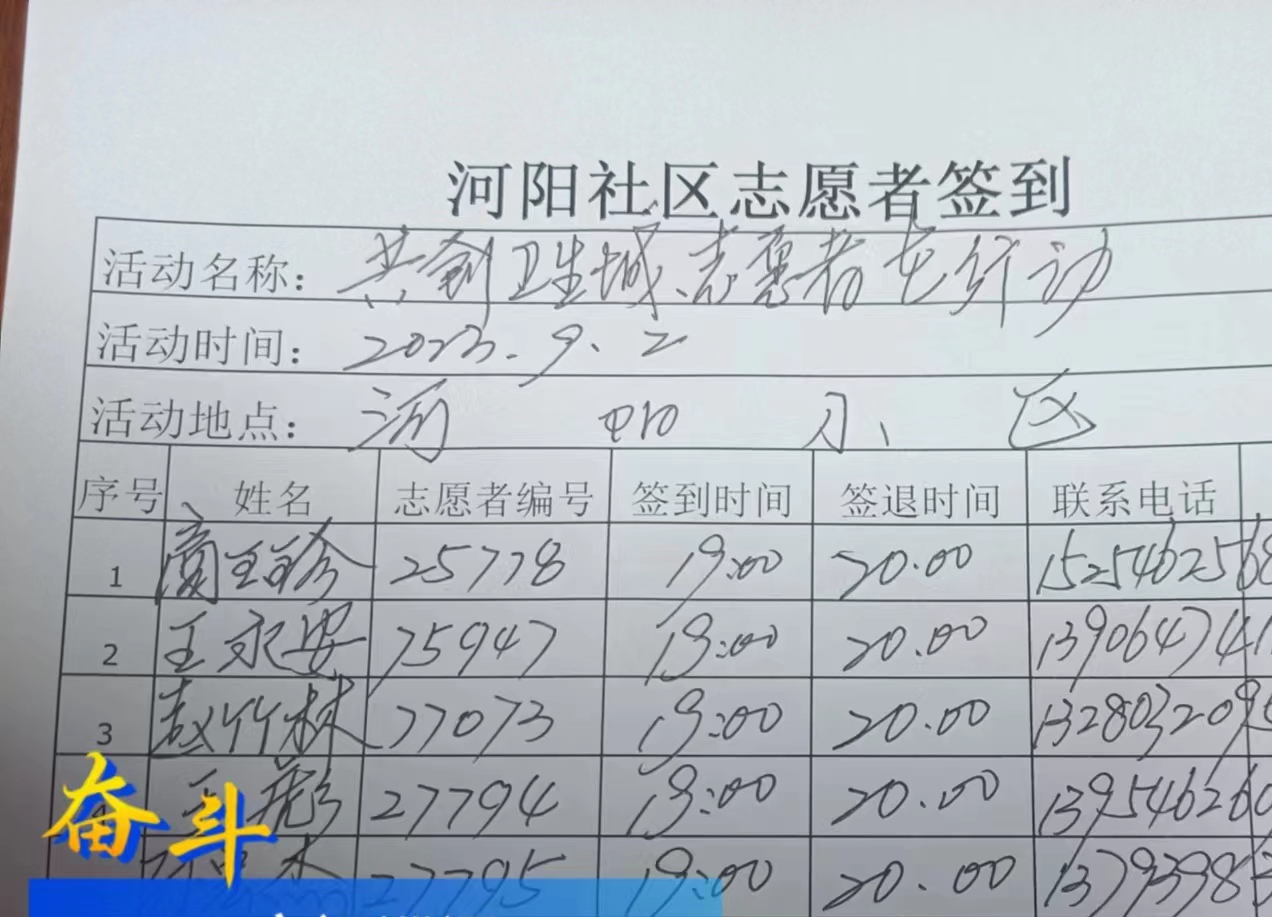 河阳社区志愿者签到
活动名称：共创卫生城、志愿者在行动
活动时间：2023.9.2
活动地点：河阳小区
序号 姓名 志愿者编号 签到时间 签退时间 联系电话
1 25778 19:00 20.00 1525462568
2 王永安 25947 19:00 20.00 139064741
3 赵竹林 27073 19:00 20.00 132803209
4 王彪 27794 19:00 20.00 139546260
27795 19:00 20.00 13793983
奋斗